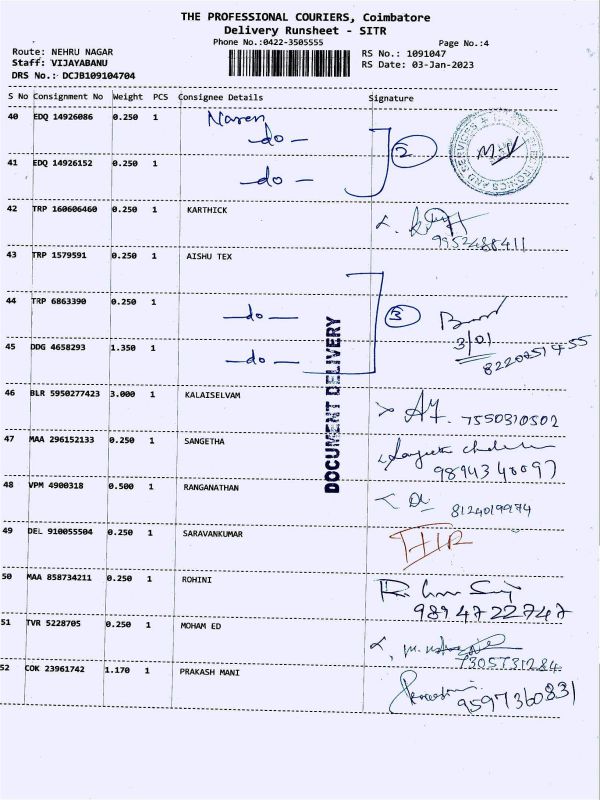 THE PROFESSIONAL COURIERS, Coimbatore
Delivery Runsheet - SITR
Phone No.:0422-3505555
Page No.:4
Route: NEHRU NAGAR
RS No.: 1091047
Staff: VIJAYABANU
RS Date: 03-Jan-2023
DRS No.: DCJB109104704
S No Consignment No Weight PCS Consignee Details Signature
40 EDQ 14926086 0.250 1 Naren
-do-
41 EDQ 14926152 0.250 1 -do- 2
42 TRP 160606460 0.250 1 KARTHICK
9952488411
43 TRP 1579591 0.250 1 AISHU TEX
44 TRP 6863390 0.250 1 -do- 3
3/01
45 DDG 4658293 1.350 1 -do- 8220251455
DOCUMENT DELIVERY
46 BLR 5950277423 3.000 1 KALAISELVAM
7550310502
47 MAA 296152133 0.250 1 SANGETHA
9894340097
48 VPM 4900318 0.500 1 RANGANATHAN
8124019974
49 DEL 910055504 0.250 1 SARAVANKUMAR
50 MAA 858734211 0.250 1 ROHINI
9894722747
51 TVR 5228705 0.250 1 MOHAM ED
7305731284
52 COK 23961742 1.170 1 PRAKASH MANI
9597360831